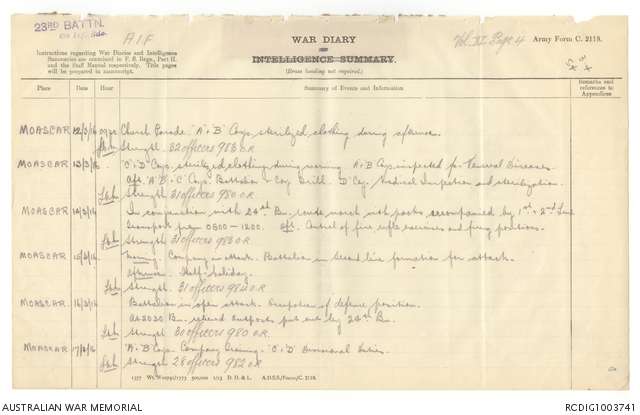 23RD BATTN.
A.I.F
WAR DIARY
OR
INTELLIGENCE SUMMARY.
(Erase heading not required.)
Vol. VI Page 4
Army Form C. 2118.
Instructions regarding War Diaries and Intelligence
Summaries are contained in F. S. Regs., Part II.
and the Staff Manual respectively. Title pages
will be prepared in manuscript.
Place Date Hour Summary of Events and Information Remarks and references to Appendices
MOASCAR 12/3/16 Church Parade. "A" + "B" Coys. sterilized clothing during afternoon.
Strength 32 officers 983 O.R.
MOASCAR 13/3/16 "C" + "D" Coys. sterilized clothing during morning A + B Coys inspected for Venereal Diseases.
Aft. "A" "B" + "C" Coys. Battalion + Coy Drill. "D" Coy. Medical Inspection and sterilization.
Strength 31 officers 980 O.R.
MOASCAR 14/3/16 In conjunction with 24th Bn. route march with packs accompanied by 1st + 2nd Line
transport from 0800 - 1200. Aft. Control of fire rifle exercises and firing positions.
Strength 31 officers 983 O.R.
MOASCAR 15/3/16 Training. Company in attack. Battalion in second line formation for attack.
Afternoon Half-holiday.
Strength 31 officers 984 O.R.
MOASCAR 16/3/16 Battalion in open attack. Occupation of defence position.
At 2030 Bn. relieved outposts put out by 24th Bn.
Strength 30 officers 980 O.R.
MOASCAR 17/3/16 "A" + "B" Coys. Company training. "C" + "D" Divisional Duties.
Strength 28 officers 982 O.R.
A.D.S.S./Forms/C. 2118.
AUSTRALIAN WAR MEMORIAL
RCDIG1003741